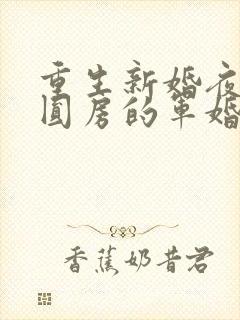 重生新婚夜
圆房的军婚
香蕉奶昔君